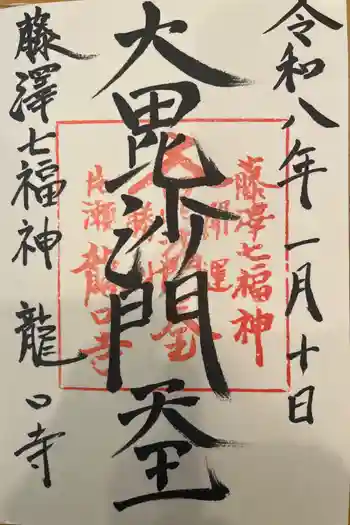 令和八年一月十日
大毘沙門天王
藤澤七福神 龍口寺
藤澤七福神
開運
片瀬 龍口寺